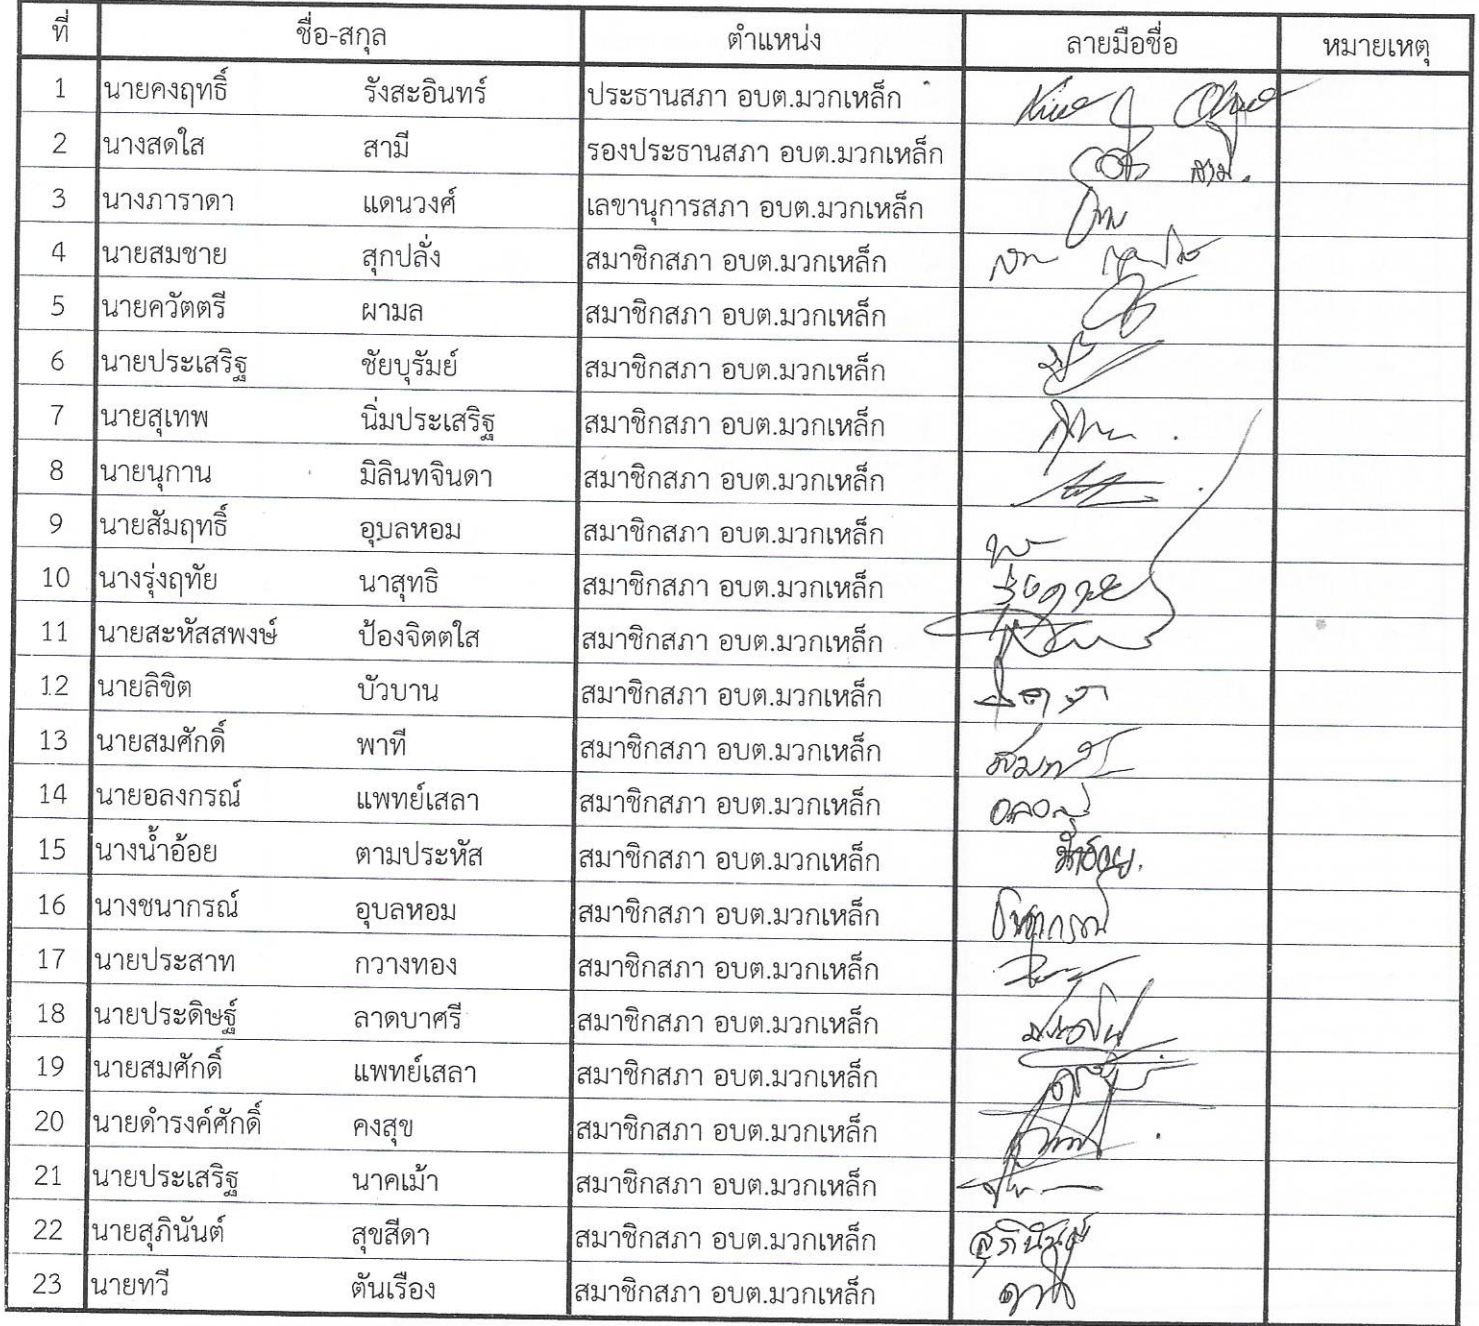 ที่ ชื่อ-สกุล ตำแหน่ง ลายมือชื่อ หมายเหตุ
1 นายคงฤทธิ์ รังสะอินทร์ ประธานสภา อบต.มวกเหล็ก
2 นางสดใส สามี รองประธานสภา อบต.มวกเหล็ก
3 นางภาราดา แดนวงศ์ เลขานุการสภา อบต.มวกเหล็ก
4 นายสมชาย สุกปลั่ง สมาชิกสภา อบต.มวกเหล็ก
5 นายควัตตรี ผามล สมาชิกสภา อบต.มวกเหล็ก
6 นายประเสริฐ ชัยบุรัมย์ สมาชิกสภา อบต.มวกเหล็ก
7 นายสุเทพ นิ่มประเสริฐ สมาชิกสภา อบต.มวกเหล็ก
8 นายนุกาน มิลินทจินดา สมาชิกสภา อบต.มวกเหล็ก
9 นายสัมฤทธิ์ อุบลหอม สมาชิกสภา อบต.มวกเหล็ก
10 นางรุ่งฤทัย นาสุทธิ สมาชิกสภา อบต.มวกเหล็ก
11 นายสะหัสสพงษ์ ป้องจิตตใส สมาชิกสภา อบต.มวกเหล็ก
12 นายลิขิต บัวบาน สมาชิกสภา อบต.มวกเหล็ก
13 นายสมศักดิ์ พาที สมาชิกสภา อบต.มวกเหล็ก
14 นายอลงกรณ์ แพทย์เสลา สมาชิกสภา อบต.มวกเหล็ก
15 นางน้ำอ้อย ตามประหัส สมาชิกสภา อบต.มวกเหล็ก น้ำอ้อย.
16 นางชนากรณ์ อุบลหอม สมาชิกสภา อบต.มวกเหล็ก ชนากรณ์
17 นายประสาท กวางทอง สมาชิกสภา อบต.มวกเหล็ก
18 นายประดิษฐ์ ลาดบาศรี สมาชิกสภา อบต.มวกเหล็ก
19 นายสมศักดิ์ แพทย์เสลา สมาชิกสภา อบต.มวกเหล็ก
20 นายดำรงค์ศักดิ์ คงสุข สมาชิกสภา อบต.มวกเหล็ก
21 นายประเสริฐ นาคเม้า สมาชิกสภา อบต.มวกเหล็ก
22 นายสุภินันต์ สุขสีดา สมาชิกสภา อบต.มวกเหล็ก สุภินันต์
23 นายทวี ตันเรือง สมาชิกสภา อบต.มวกเหล็ก